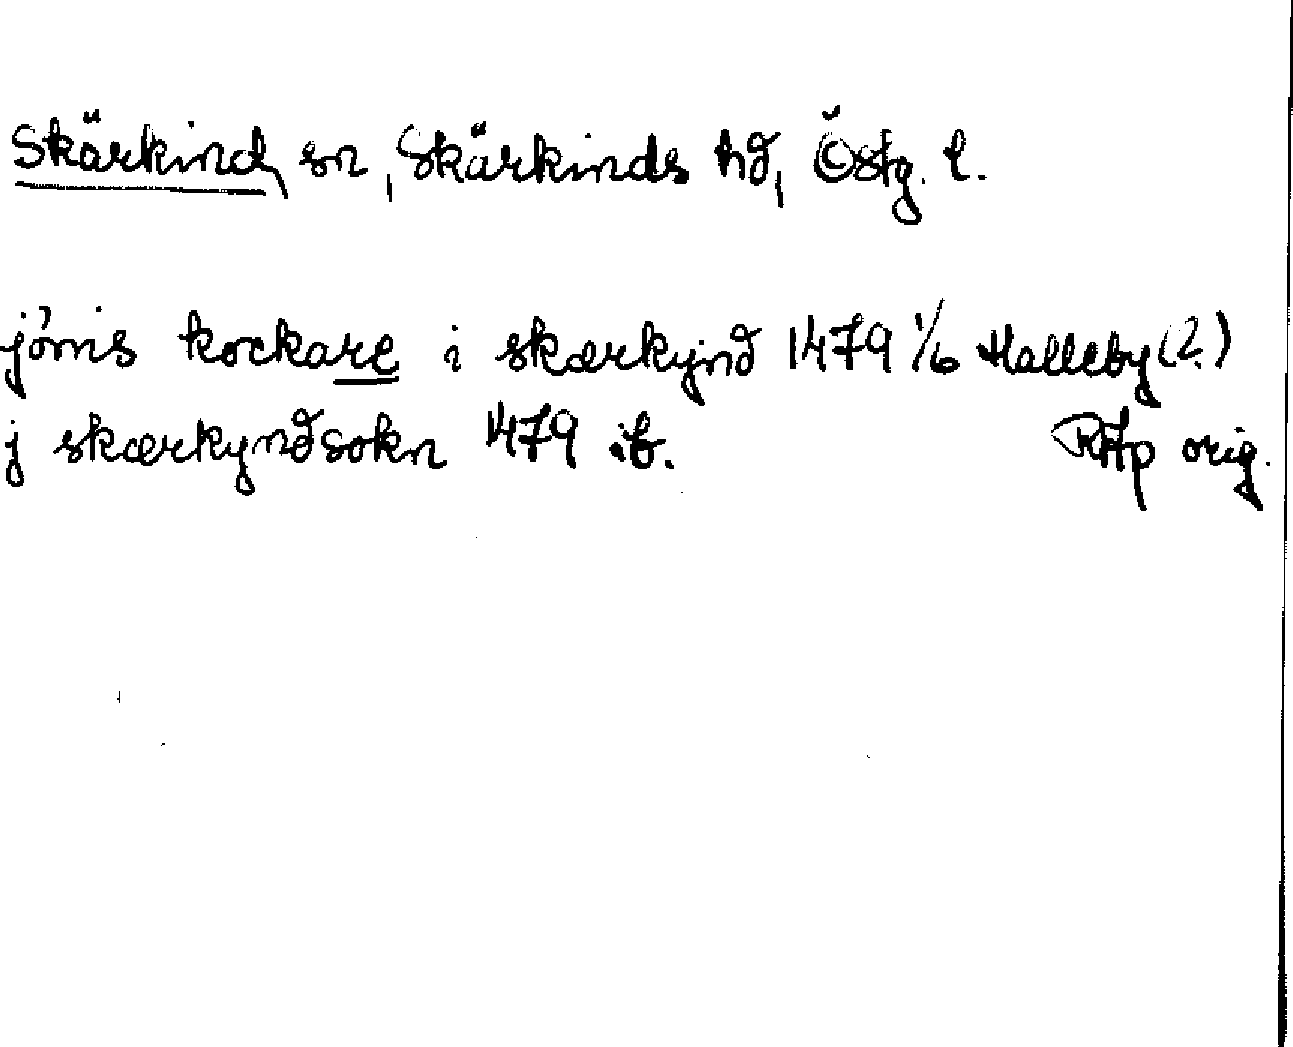 Skärkind sn, Skärkinds hd, Östg. l.
jönis kockare i skærkynd 1479 1/6 Halleby (?)
j skærkyndsokn 1479 ib. RAp orig.